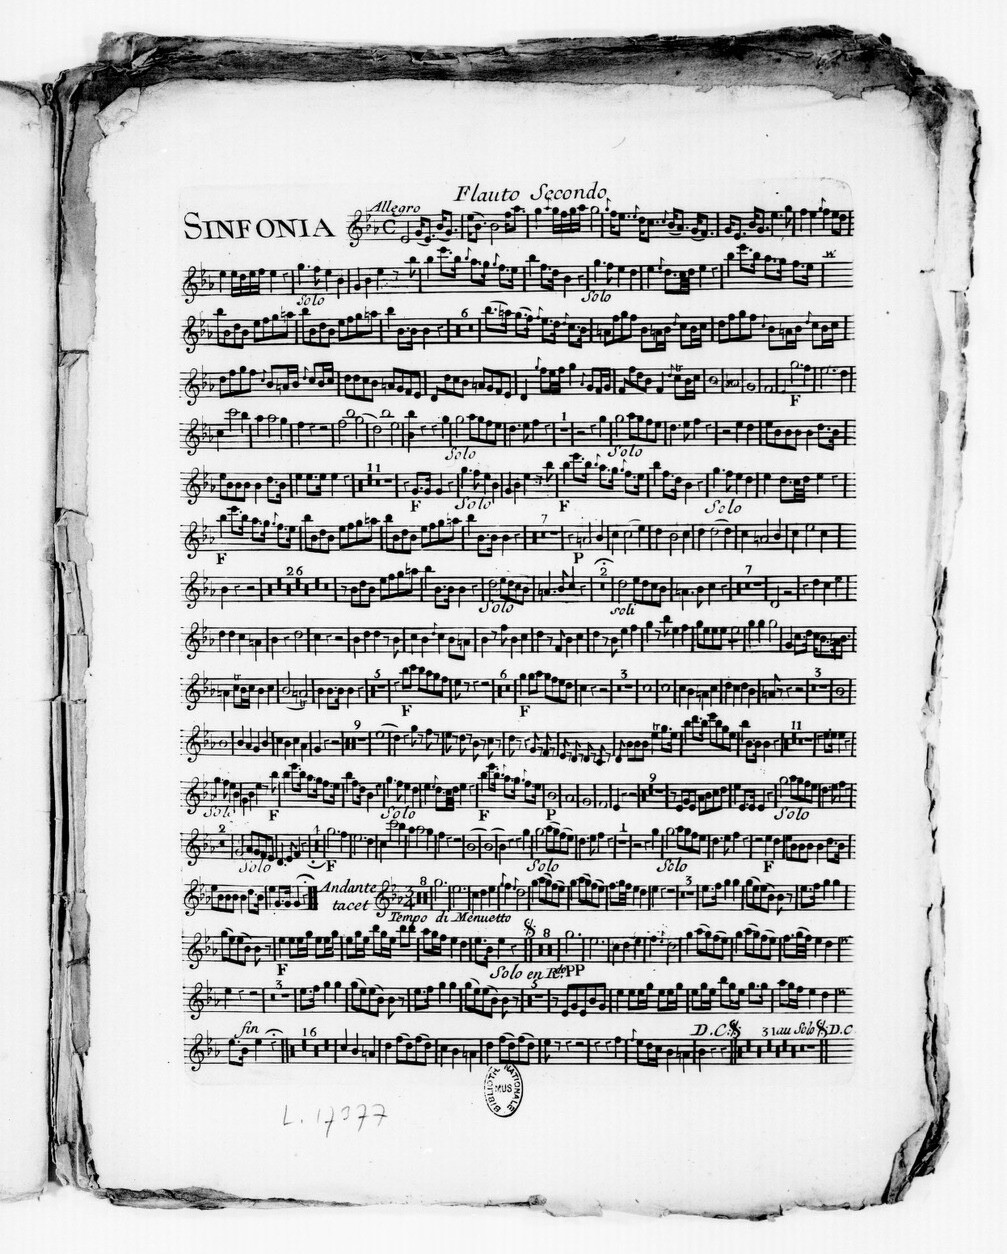 Flauto Secondo
SINFONIA Allegro C
Solo Solo
6
F
1
Solo Solo
11
F Solo F Solo
7
F P
26 2 7
Solo soli
tr
5 6 3 3
F F
9 tr 11
9
Solo F Solo F P Solo
2 1 1
Solo F Solo Solo F
Andante tacet 3/4 8 3
Tempo di Menuetto
8
F Solo en R.do PP
3 5
fin 16 D.C. 31 au Solo D.C
BIBLIOTH. NATIONALE
MUS
L. 17377